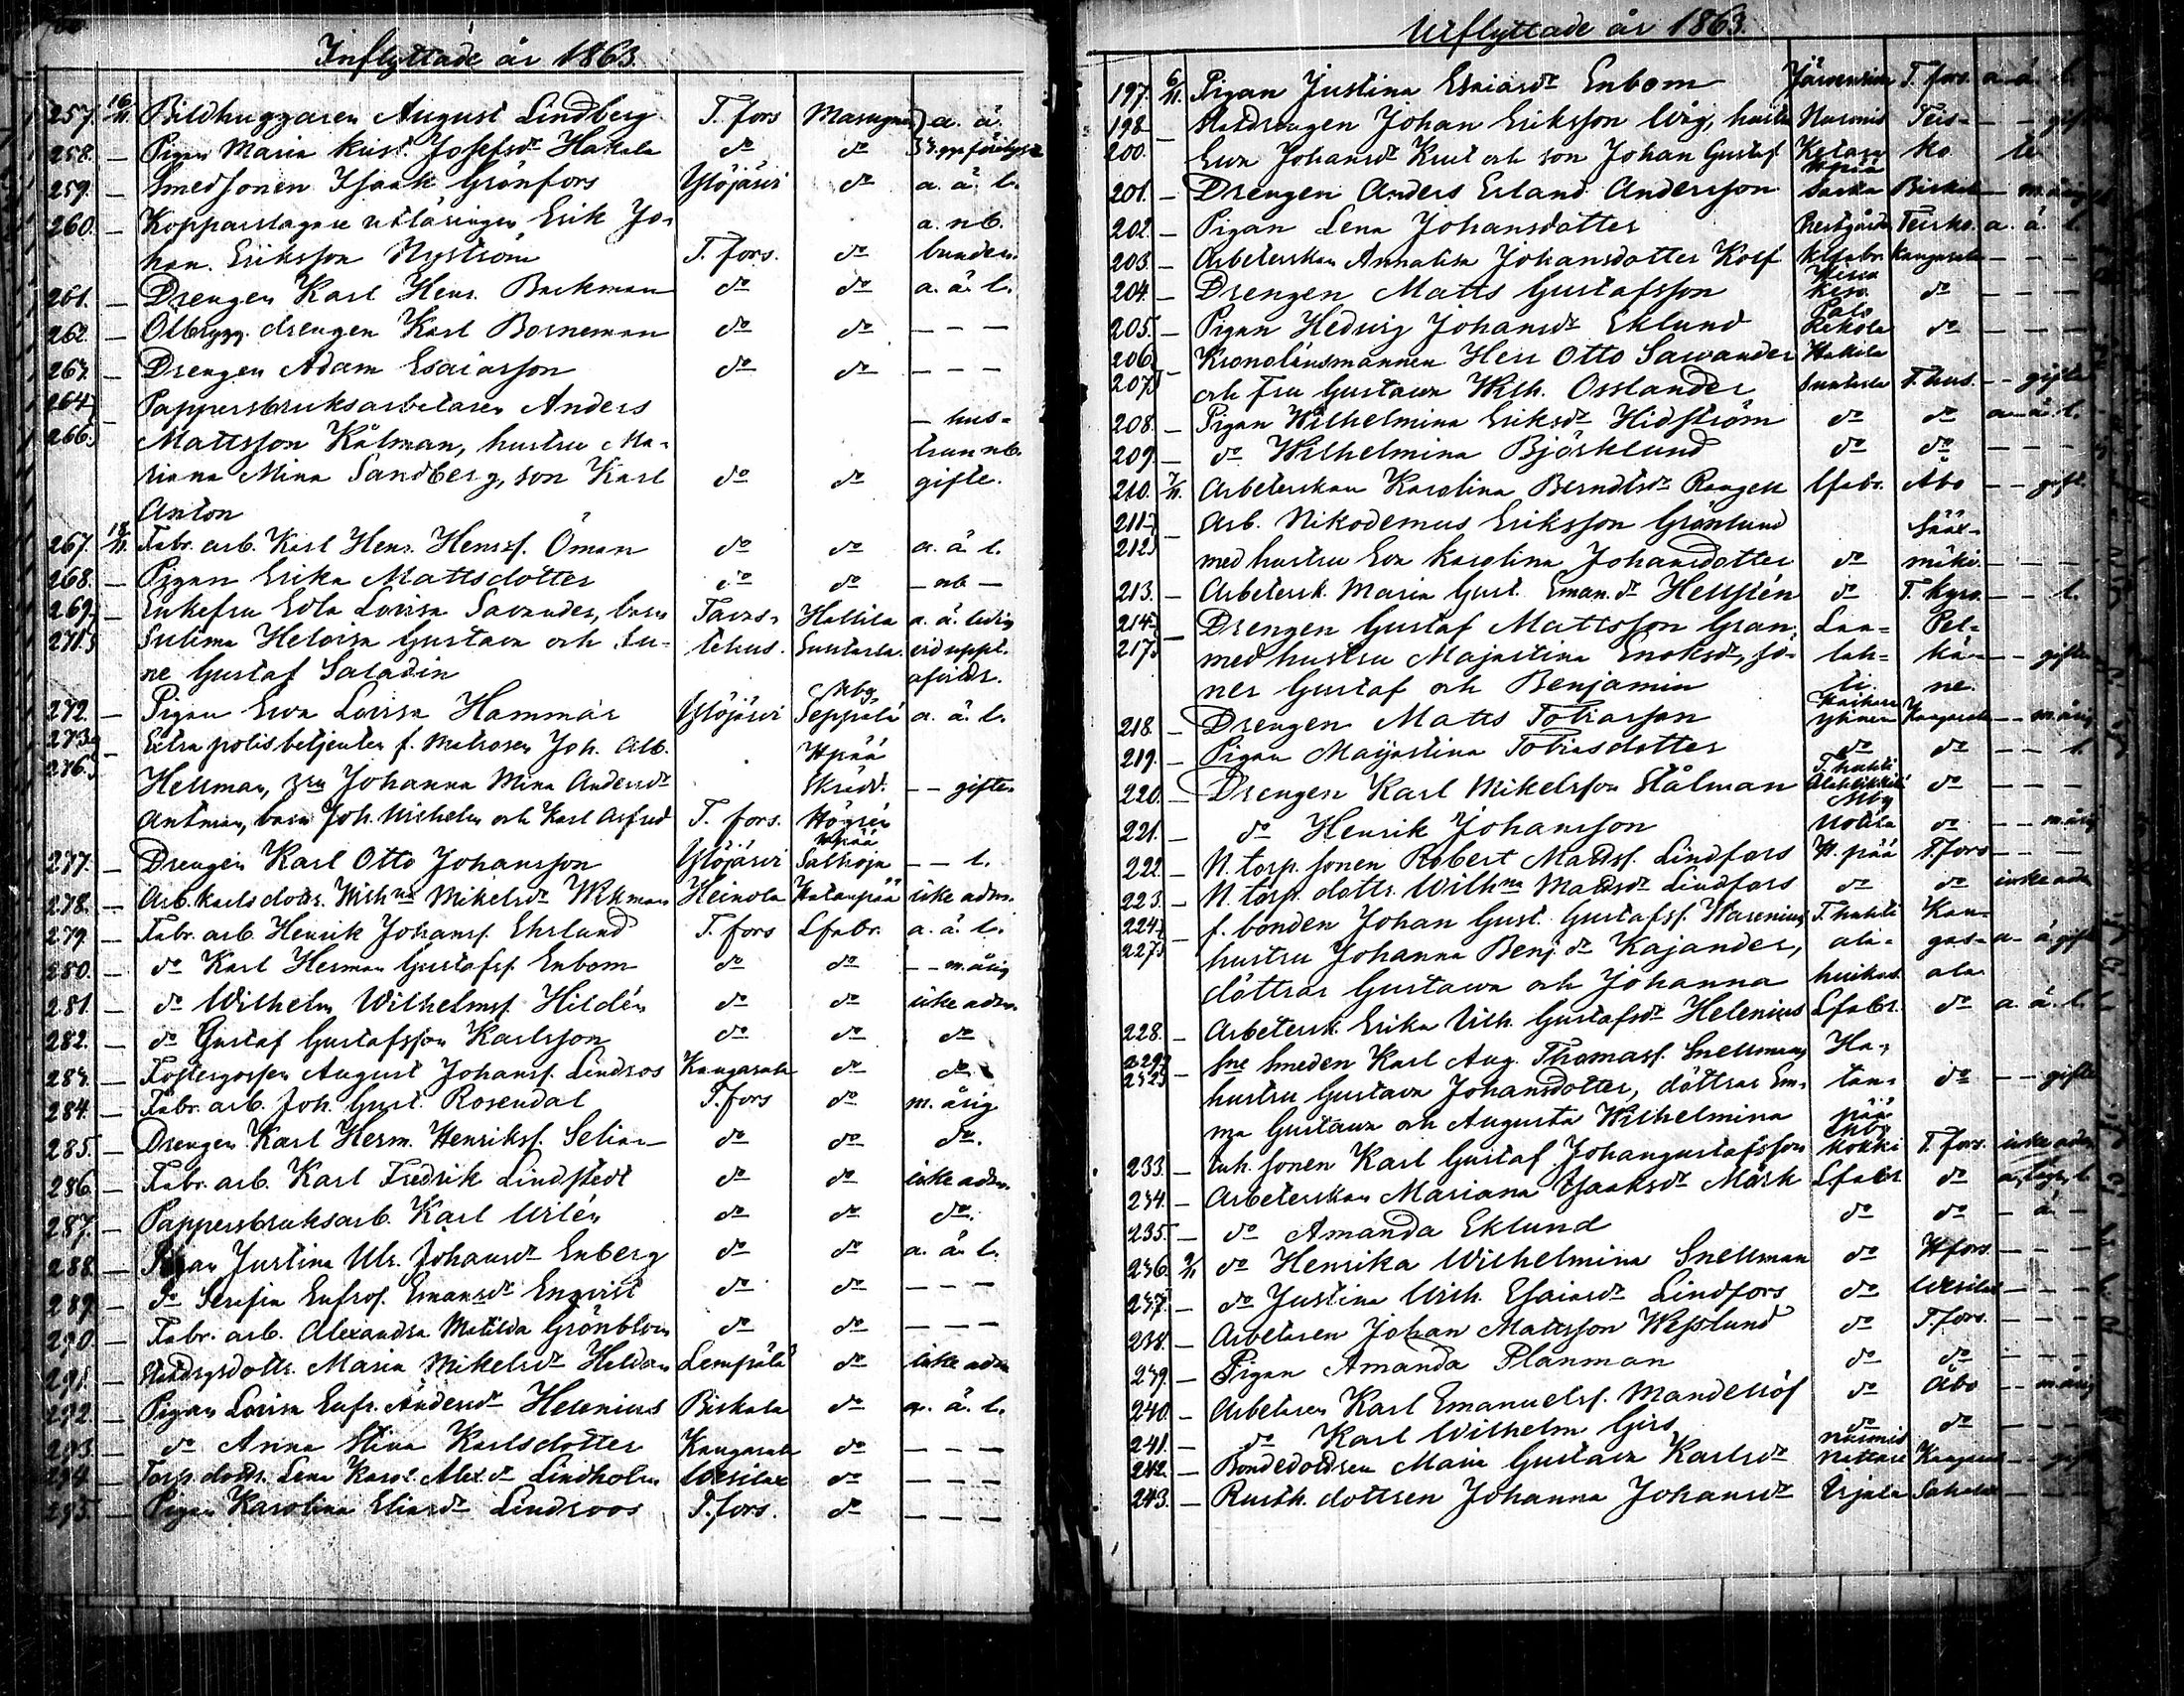 Inflyttade år 1863.
257. 16/11. Bildhuggaren August Lindberg T. fors a. ä.
258. — Pigan Maria Krist. Josefsdr Hakala do do
259. — Smedsonen Isaak Grönfors Ylöjärvi do a. ä. l.
260. — Kopparslagare utläringen Erik Jo- a. nb.
han Eriksson Nyström T. fors. do bunden.
261. — Drengen Karl Henr. Backman do do a. ä. l.
262. — Ölbrygg. drengen Karl Borneman do do — — —
263. — Drengen Adam Esaiasson do do — — —
264. — Pappersbruksarbetaren Anders — hus-
266. Mattsson Kålman, hustru Ma- trun nb.
riana Mina Sandberg, son Karl do do gifte.
Anton
267. 18/11. Fabr. arb. Karl Henr. Henrsf. Öman do do a. ä. l.
268. — Pigan Erika Mattsdotter do do — nb —
269. — Enkefru Edla Lovisa Savander, barn Tavas- Hallila a. ä. ledig
271. Sulima Heloisa Gustava och Su- tehus. Suntarla. vid uppl.
ne Gustaf Saladin
272. — Pigan Eva Lovisa Hammar Ylöjärvi Seppälä a. ä. l.
273. — Extra polisbetjenten f. Matrosen Joh. Alb. Hpää
276. Hellman, Johanna Mina Andersdr Skrädd. — — gifte
Antman, barn Joh. Wilhelm och Karl Alfred T. fors. Högrén
277. — Drengen Karl Otto Johansson Ylöjärvi Hpää Salhoja — — l.
278. — Arb. karls dottr. Wilhna Mikelsdr Wikman Heinola Hatanpää icke adm.
279. — Fabr. arb. Henrik Johansf. Ehrlund T. fors Lfabr. a. ä. l.
280. — do Karl Herman Gustafsf. Enbom do do — — m. årig
281. — do Wilhelm Wilhelmsf. Hildén do do icke adm.
282. — do Gustaf Gustafsson Karlsson do do do
283. — Fostergossen August Johansf. Lindros Kangasala do do
284. — Fabr. arb. Joh. Gust. Rosendal T. fors do m. årig
285. — Drengen Karl Herm. Henriksf. Selin do do do.
286. — Fabr. arb. Karl Fredrik Lindstedt do do icke adm.
287. — Pappersbruksarb. Karl Urlén do do do.
288. — Pigan Justina Ulr. Johansdr Enberg do do a. ä. l.
289. — do Serafia Eufros. Emansdr Enqvist do do — — —
290. — Fabr. arb. Alexandra Matilda Grönblom do do — — —
291. — Maria Mikelsdr Heldán Lempälä do icke adm
292. — Pigan Lovisa Eufr. Andersdr Helenius Birkala do a. ä. l.
293. — do Anna Stina Karlsdotter Kangasala do — — —
294. — Torp. dottr. Lena Karol. Alex.dr Lindholm Wesilax do — — —
295. — Pigan Karolina Eliasdr Lindroos T. fors. do — — —
Utflyttade år 1863.
197. 6/11. Pigan Justina Esaiasdr Enbom Järvensivu T. fors. a. ä. l.
198. — Johan Eriksson Wig, hustru Nurmis Teis- — — gift
200. Eva Johansdr Krut och son Johan Gustaf ko.
201. — Drengen Anders Erland Andersson Birkala — m. årig
202. — Pigan Lena Johansdotter Prestgården Teisko. a. ä. l.
203. — Arbeterskan Annalisa Johansdotter Korf Kangasala — — —
204. — Drengen Matts Gustafsson do — — —
205. — Pigan Hedvig Johansdr Eklund do — — —
206. — Kronolänsmannen Herr Otto Savander Hakila
207. och Fru Gustava Wilh. Osslander Suntarla T. hus. — — gifte
208. — Pigan Wilhelmina Eriksdr Hidström do do a. ä. l.
209. — do Wilhelmina Björklund do do — — —
210. 7/11. Arbeterskan Karolina Berndtsdr Rangell Lfabr. Åbo — — gift.
211. — Arb. Nikodemus Eriksson Grönlund Sääx-
212. med hustru Eva Karolina Johansdotter do mäki. — — —
213. — Arbetersk. Maria Gust. Eman.dr Hellstén do T. kyro. — — l.
214. — Drengen Gustaf Mattsson Gran, Laa- Pel-
217. med hustru Majastina Enoksdr, sö- lah- kä- — — gifte
ner Gustaf och Benjamin ti ne.
218. — Drengen Matts Tobiasson Kangasala — — m. årig
219. — Pigan Majastina Tobiasdotter do do — — l.
220. — Drengen Karl Mikelsson Stålman do — — —
221. — do Henrik Johansson do — — m. årig
222. — N. torp. sonen Robert Mattsf. Lindfors H. pää T. fors — — —
223. — N. torp. dottr. Wilhna Mattsdr Lindfors do do icke adm
224. — f. bonden Johan Gust. Gustafsf. Warenius, T. hahti Kan-
227. hustru Johanna Benj.dr Kajander, ala- gas- a. ä gift
döttrar Gustava och Johanna huikas. ala
228. — Arbetersk. Erika Wilh. Gustafsdr Helenius Lfabr. do a. ä. l.
229. — Sne Smeden Karl Aug. Thomasf. Snellman, Ha-
232. hustru Gustava Johansdotter, döttrar Em- tan- do — — gifte
ma Gustava och Augusta Wilhelmina pää
233. — Inh. sonen Karl Gustaf Johangustafsson T. fors. icke adm
234. — Arbeterskan Mariana Isaaksdr Mark Lfabr do
235. — do Amanda Eklund do do — ä —
236. 9/11 do Henrika Wilhelmina Snellman do Hfors. — — —
237. — do Justina Wilh. Esaiasdr Lindfors do Wesilax — — —
238. — Arbetaren Johan Mattsson Wesslund do T. fors. — — —
239. — Pigan Amanda Planman do do — — —
240. — Arbetaren Karl Emanuelsf. Mandellöf do Åbo — — m. årig
241. — do Karl Wilhelm Girs do do — — —
242. — Bondedottren Maria Gustava Karlsdr Nurmis Nattari Kangasala — — gift
243. — Rusth. dottren Johanna Johansdr Sahala — — —